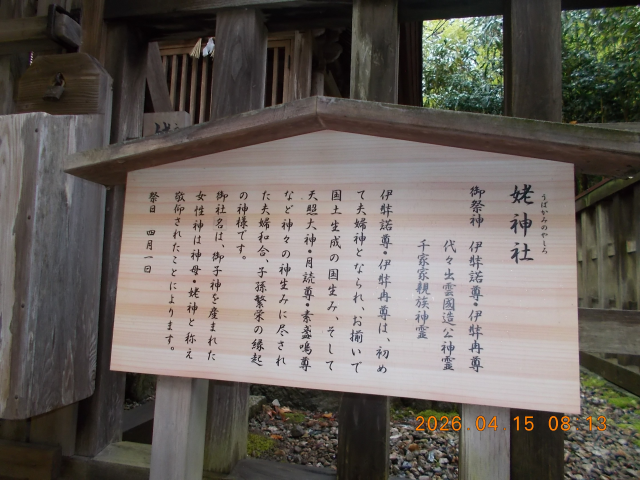 うばかみのやしろ
姥神社
御祭神 伊弉諾尊・伊弉冉尊
代々出雲國造公神霊
千家家親族神霊
伊弉諾尊・伊弉冉尊は、初め
て夫婦神となられ、お揃いで
国土生成の国生み、そして
天照大神・月読尊・素盞鳴尊
など神々の神生みに尽され
た夫婦和合、子孫繁栄の縁起
の神様です。
御社名は、御子神を産まれた
女性神は神母・姥神と称え
敬仰されたことによります。
祭日 四月一日
2026.04.15 08:13